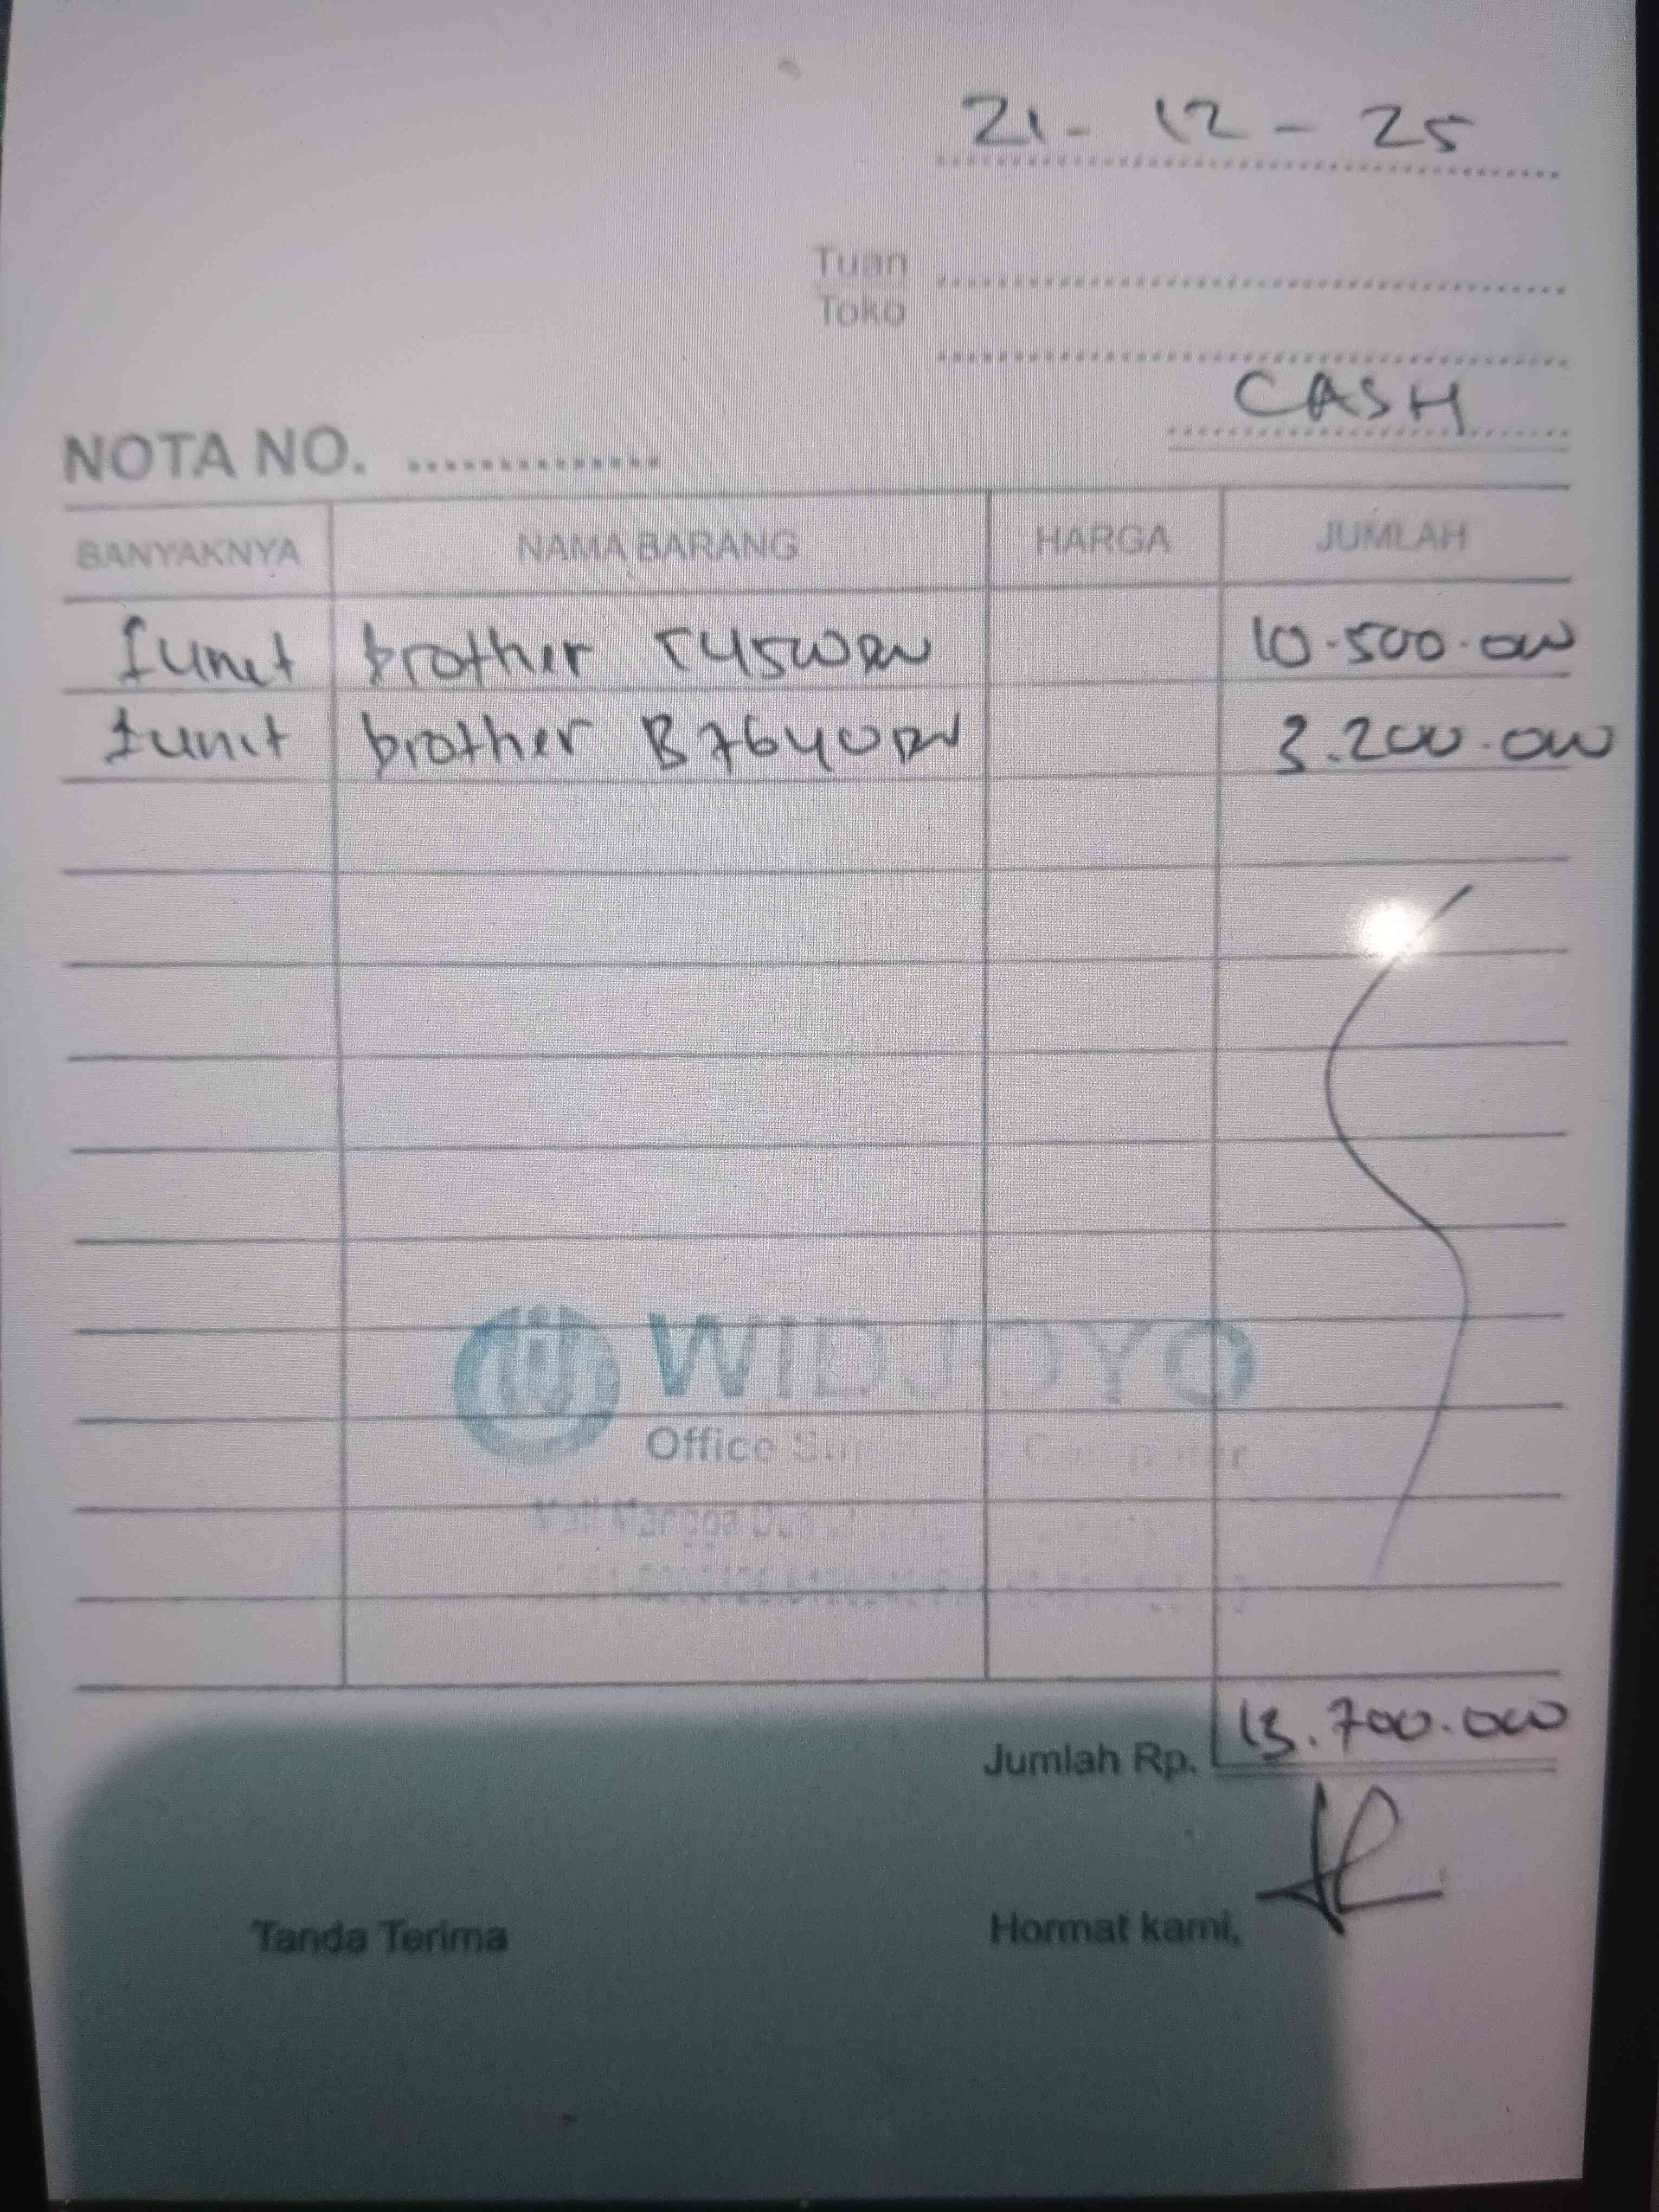 21 - 12 - 25
Tuan
Toko
CASH
NOTA NO.
BANYAKNYA NAMA BARANG HARGA JUMLAH
1 unit brother T4500DW 10.500.000
1 unit brother B7640DW 3.200.000
WIDJOYO
Office
Mangga
Jumlah Rp. 13.700.000
Tanda Terima Hormat kami,